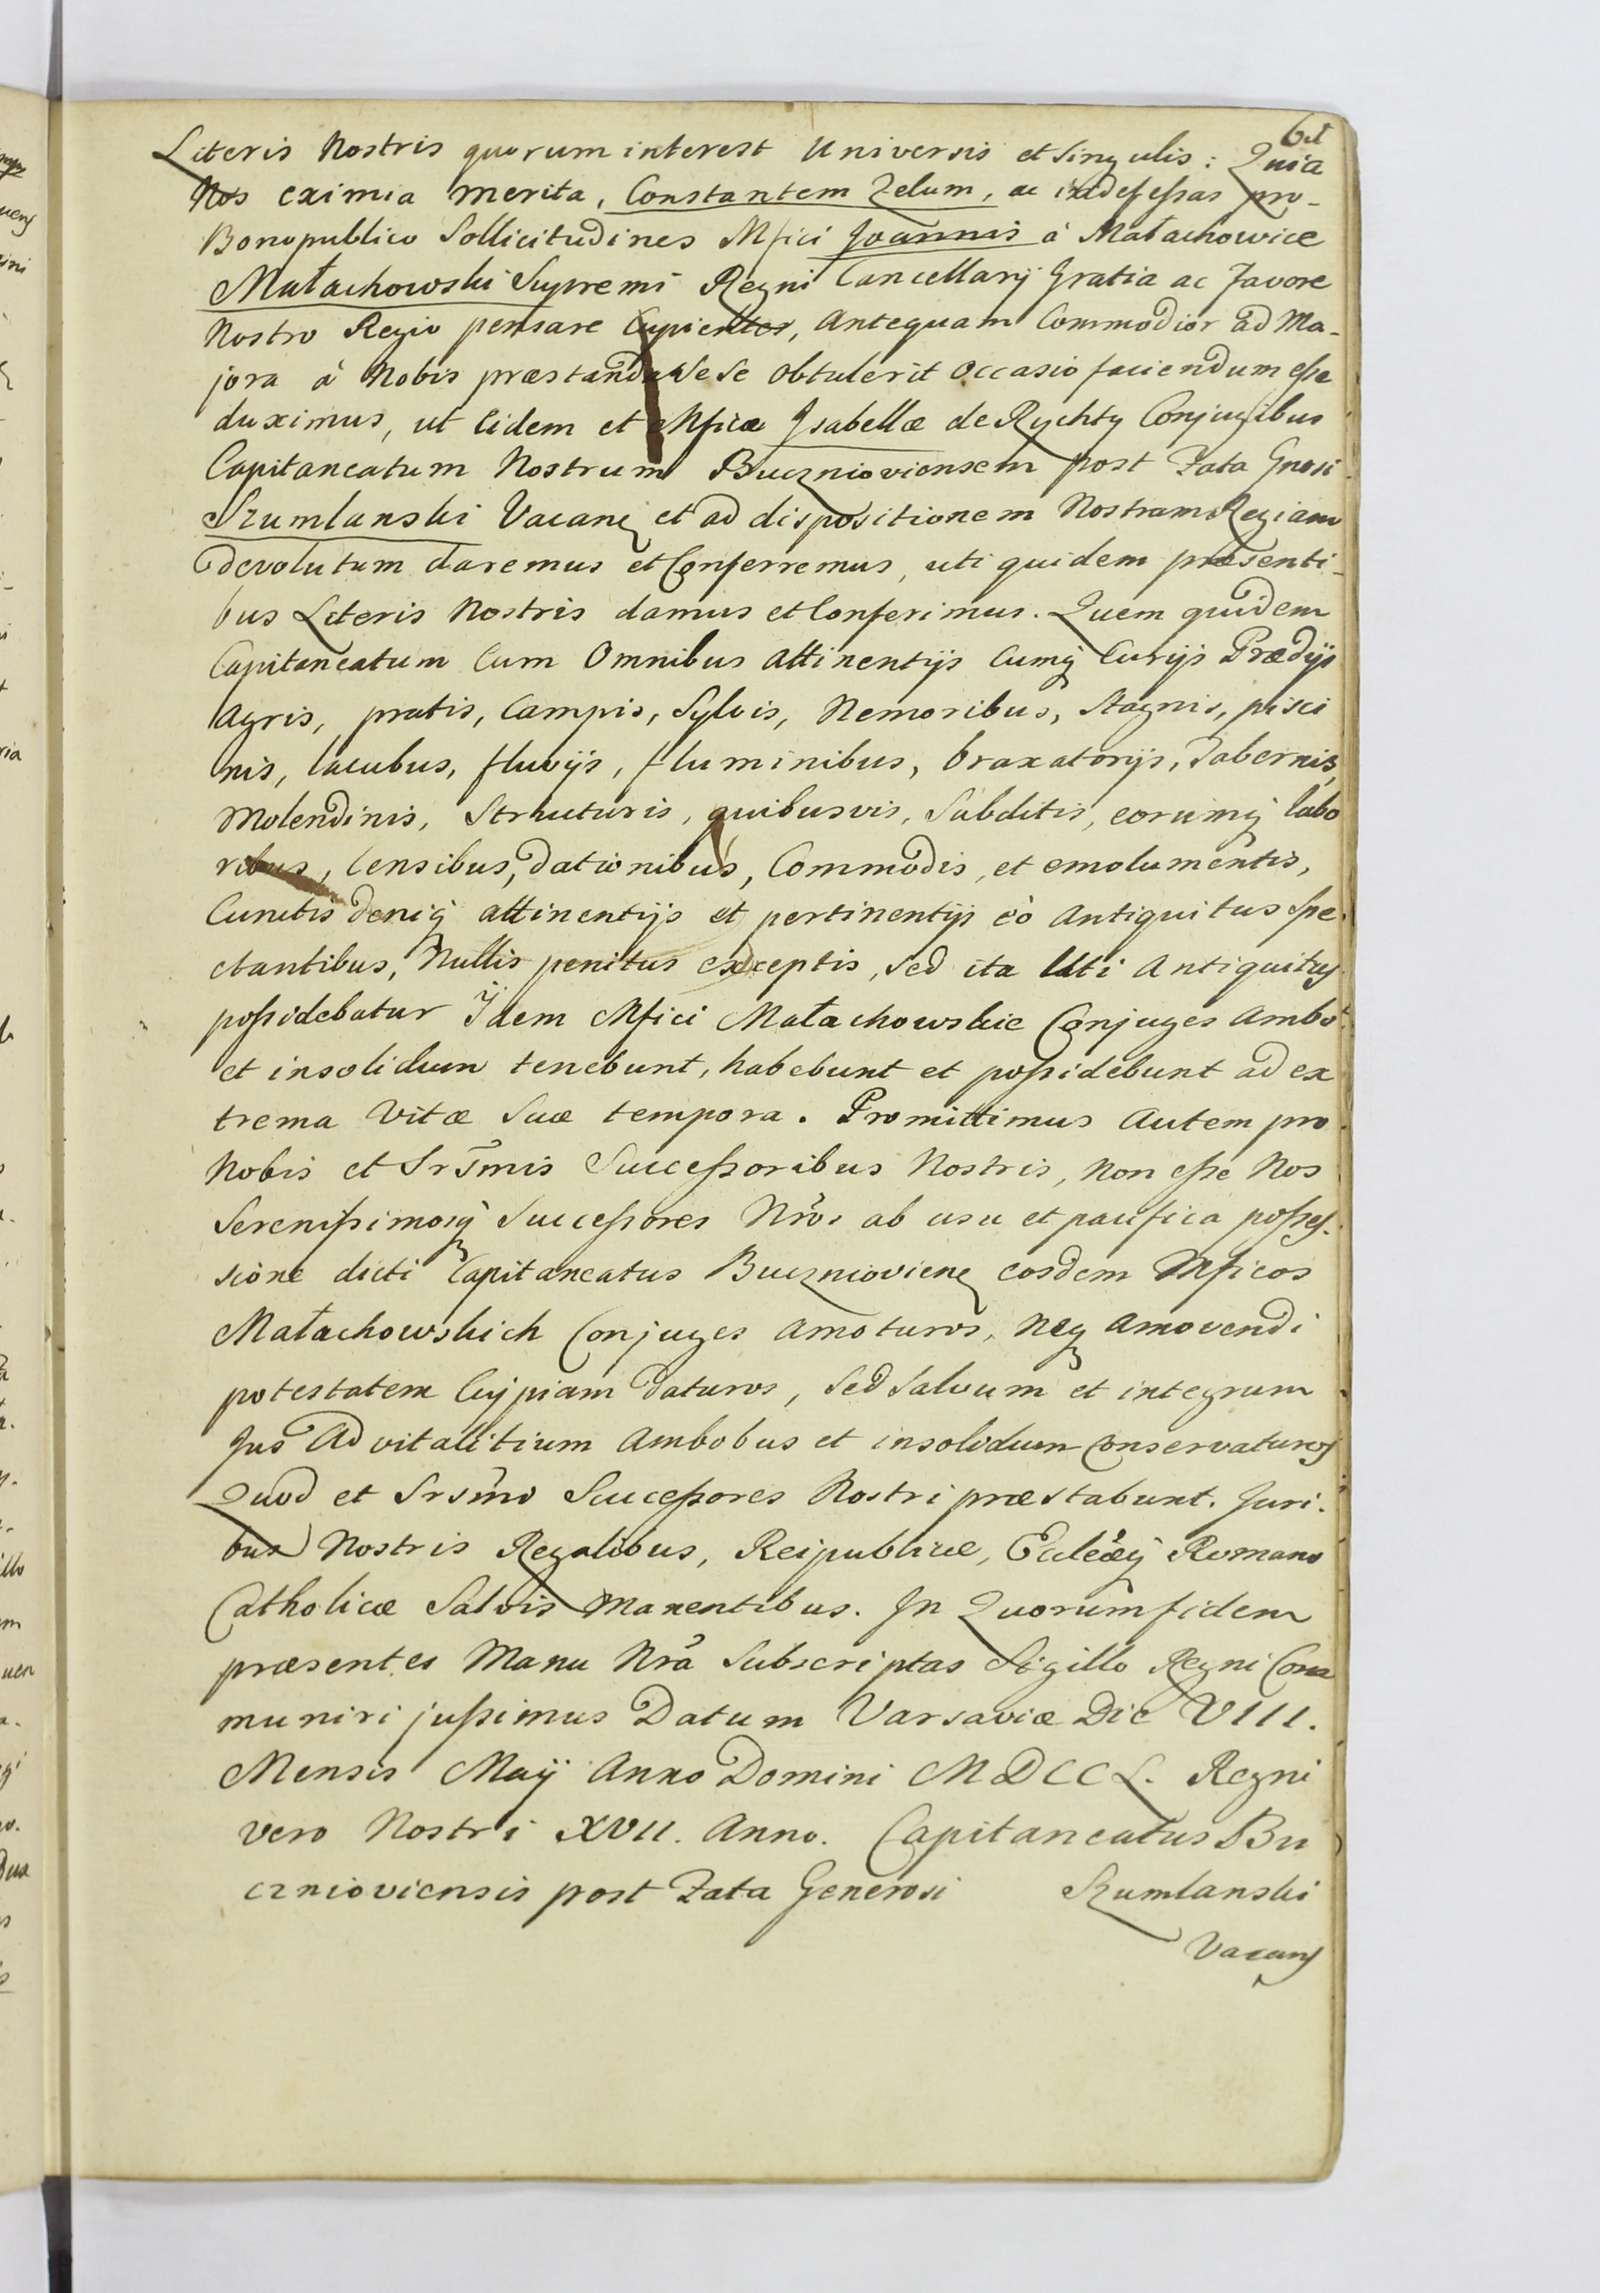 Literis Nostris quorum interest Universis et Singulis: Quia
Nos eximia merita, Constantem Zelum, ac indefeßas pro-
Bono publico Sollicitudines Mfici Joannis à Małachowice
Małachowski Supremi Regni Cancellarij Gratia ac Favore
Nostro Regio pensare Cupientes, Antequam Commodior ad Ma-
jora à Nobis præstanda Sese Obtulerit Occasio faciendum eße
duximus, ut Eidem et Mficæ Jsabellæ de Rychty Conjugibus
Capitaneatum Nostrum Bucznioviensem post Fata Gnosi
Szumlanski Vacanẽ et ad dispositionem Nostram Regiam
devolutum daremus et Conferremus, uti quidem præsenti-
bus Literis Nostris damus et Conferimus. Quem quidem
Capitaneatum Cum Omnibus attinentijs Cumq̃ Curijs Prædijs
Agris, pratis, Campis, Sylvis, Nemoribus, Stagnis, pisci
nis, lacubus, fluvijs, fluminibus, braxatorijs, Tabernis,
Molendinis, Structuris, quibusvis, Subditis, eorumq̃ labo
ribus, Censibus, dationibus, Commodis, et emolumentis,
Cunctis deniq̃ attinentijs et pertinentijs eò Antiquitus Spe-
ctantibus, Nullis penitus exceptis, Sed ita Uti Antiquitus
poßidebatur Jidem Mfici Małachowskie Conjuges Ambo
et insolidum tenebunt, habebunt et poßidebunt ad ex
trema Vitæ Suæ tempora. Promittimus Autem pro
Nobis et Srs̃mis Succeßoribus Nostris, Non eße Nos
Serenißimosq̃ Succeßores Nr̃os ab usu et pacifica poßeß-
sione dicti Capitaneatus Buczniovienẽ eosdem Mficos
Małachowskich Conjuges Amoturos, Neq̃ Amovendi
potestatem Cujpiam Daturos, Sed Salvum et integrum
Jus Advitalitium Ambobus et insolidum Conservaturos
Quod et Srs̃mo Succeßores Nostri præstabunt. Juri-
bus Nostris Regalibus, Reipublicæ, Eccleæq̃ Romano
Catholicæ Salvis Manentibus. Jn Quorum fidem
præsentes Manu Nr̃a Subscriptas Sigillo Regni Com
muniri jußimus Datum Varsaviæ Die VIII.
Mensis Maij Anno Domini MDCCL. Regni
vero Nostri XVII. Anno. Capitaneatus Bu
cznioviensis post Fata Generosi Szumlanski
Vacans